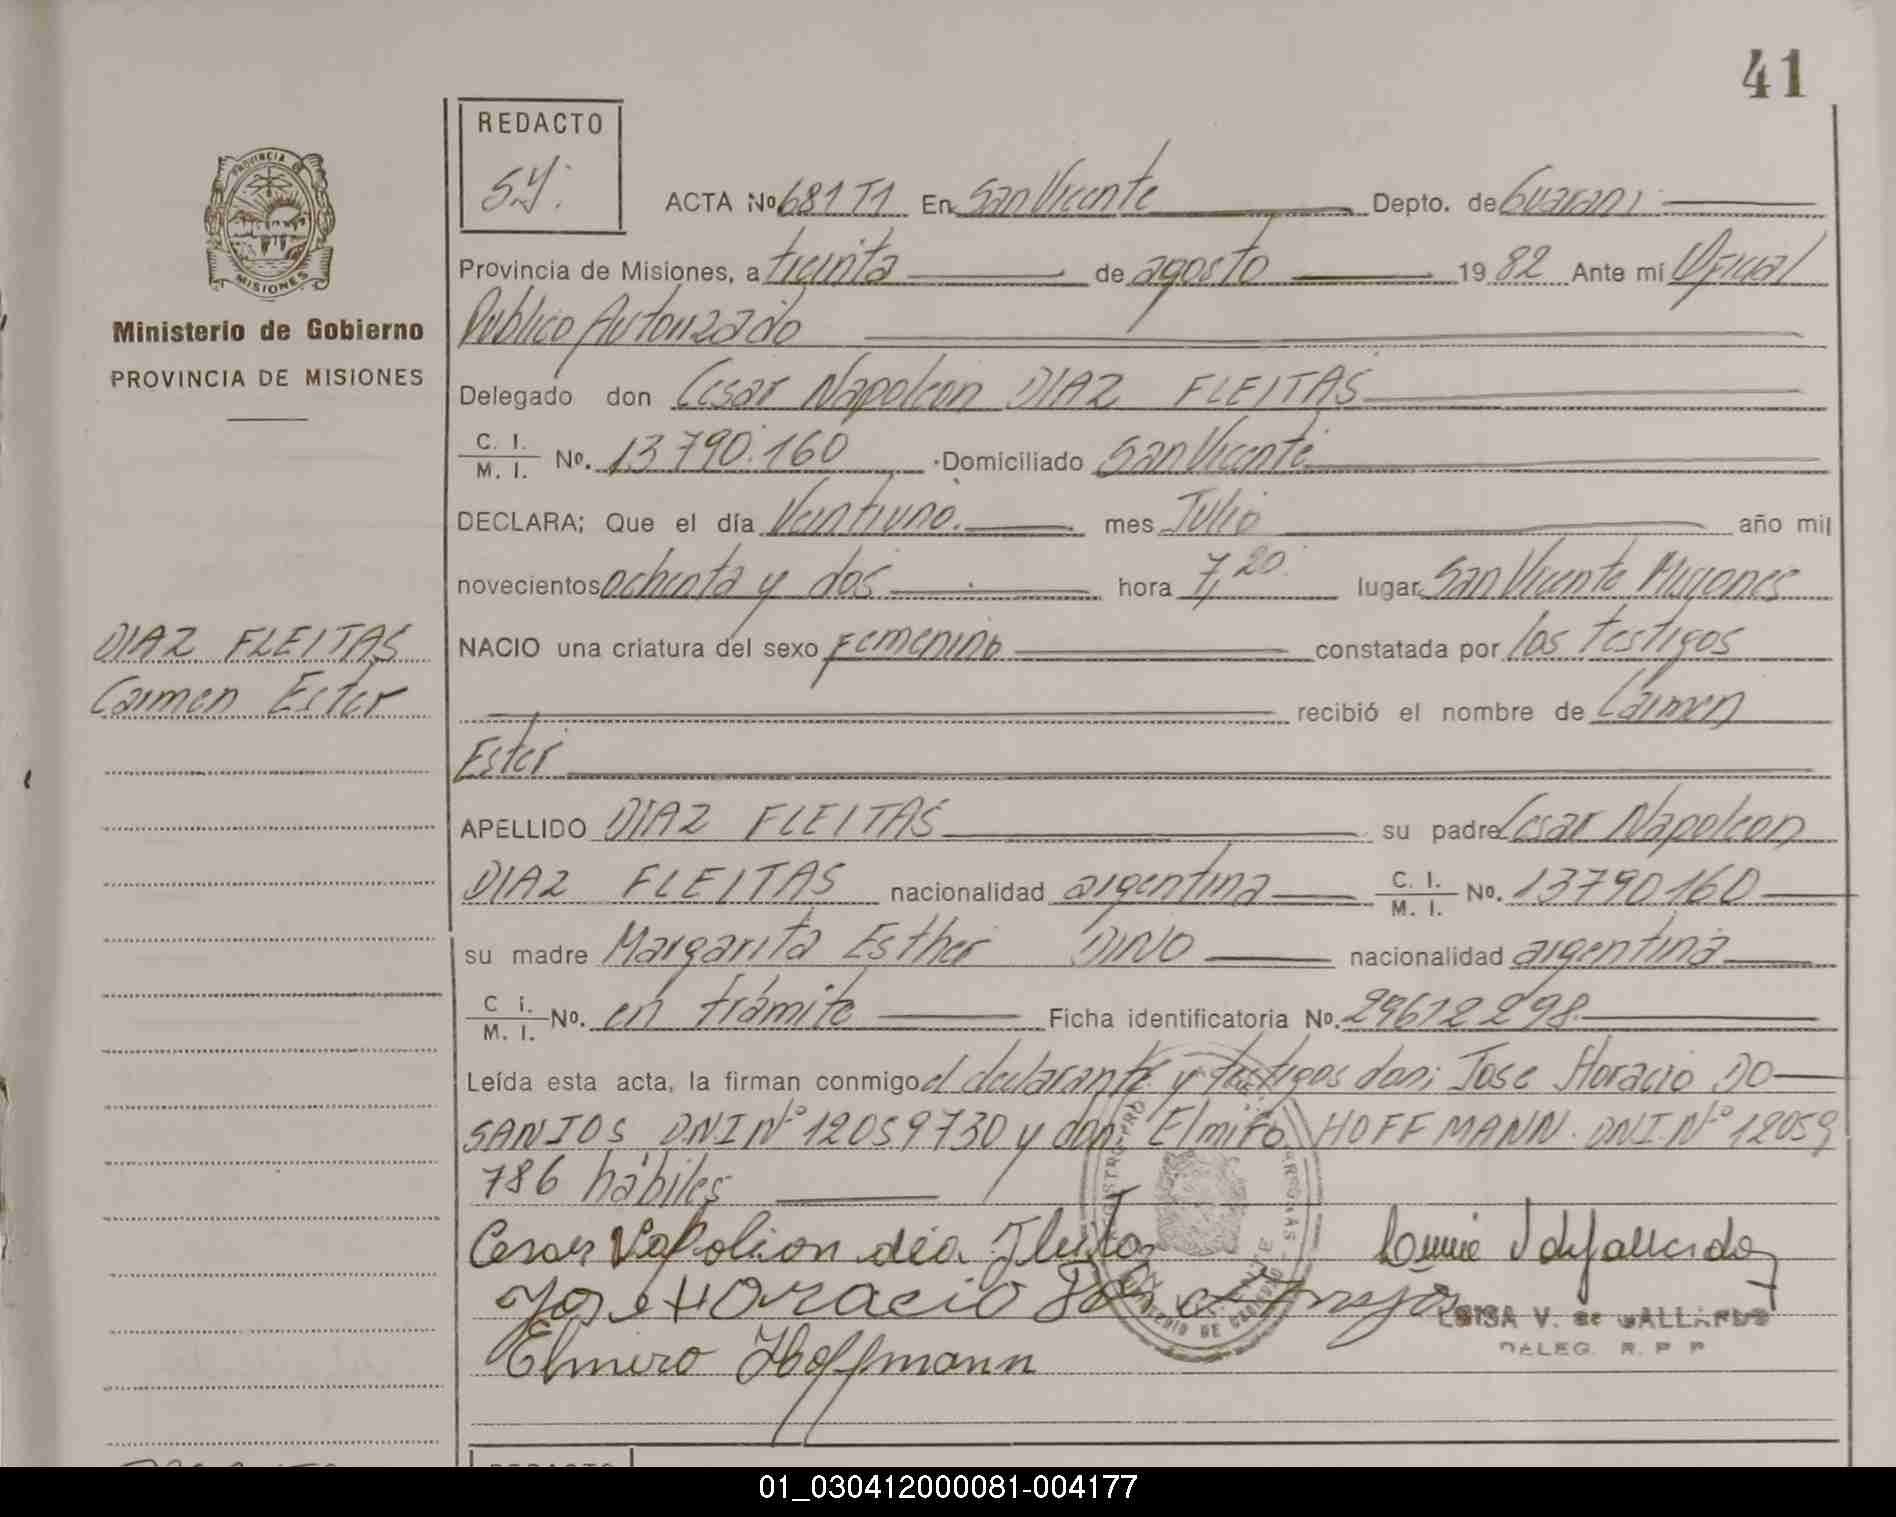 41
REDACTO
S.Y.
ACTA Nº 681 T1 En San Vicente Depto. de Guaraní
Provincia de Misiones, a treinta de agosto 1982 Ante mí Oficial
Público Autorizado
Delegado don Cesar Napoleon DIAZ FLEITAS
C. I. / M. I. Nº. 13.790.160 Domiciliado San Vicente
DECLARA; Que el día Veintiuno. mes Julio año mil
novecientos ochenta y dos hora 7,20 lugar San Vicente Misiones
NACIO una criatura del sexo femenino constatada por los testigos
recibió el nombre de Carmen
Ester
APELLIDO DIAZ FLEITAS su padre Cesar Napoleon
DIAZ FLEITAS nacionalidad argentina C. I. / M. I. Nº. 13790160
su madre Margarita Esther DINO nacionalidad argentina
C I. / M. I. Nº. en trámite Ficha identificatoria Nº. 29612298
Leída esta acta, la firman conmigo el declarante y testigos don; Jose Horacio DO
SANTOS DNI Nº 12059730 y don Elmiro HOFFMANN. DNI. Nº 12059
786 hábiles
Cesar Napolion dia Fleita
Jose Horacio Dos
Elmiro Hoffmann
LUISA V. de GALLARDO
DELEG. R. P. P.
PROVINCIA
MISIONES
Ministerio de Gobierno
PROVINCIA DE MISIONES
DIAZ FLEITAS
Carmen Ester
REDACTO
01_030412000081-004177